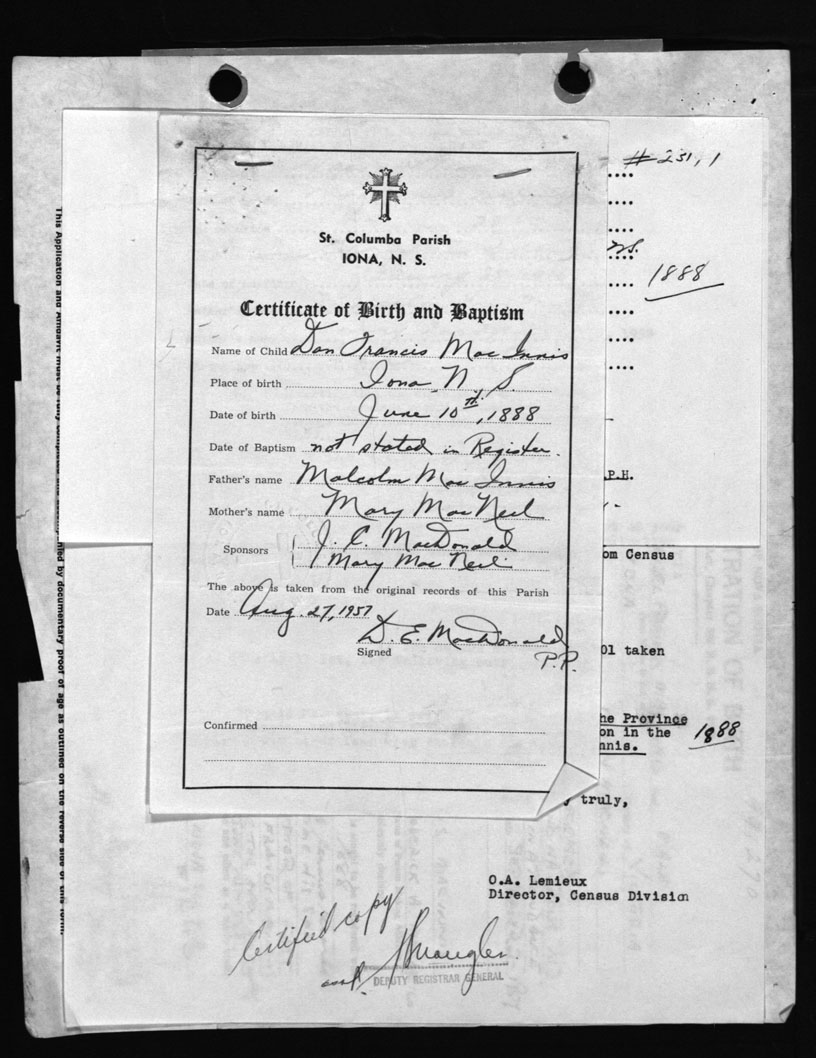 St. Columba Parish
IONA, N. S.
Certificate of Birth and Baptism
Name of Child Dan Francis Mac Innis
Place of birth Iona N. S.
Date of birth June 10th, 1888
Date of Baptism not stated in Register.
Father's name Malcolm Mac Innis
Mother's name Mary MacNeil
Sponsors J. C. MacDonald
Mary Mac Neil
The above is taken from the original records of this Parish
Date Aug. 27, 1957
D. E. MacDonald
Signed P.P.
Confirmed
# 231,1
1888
P.H.
om Census
01 taken
he Province
on in the 1888
nnis.
truly,
O.A. Lemieux
Director, Census Division
Certified copy
DEPUTY REGISTRAR GENERAL
This Application and Affidavit must be fully completed and
by documentary proof of age as outlined on the reverse side of this form.